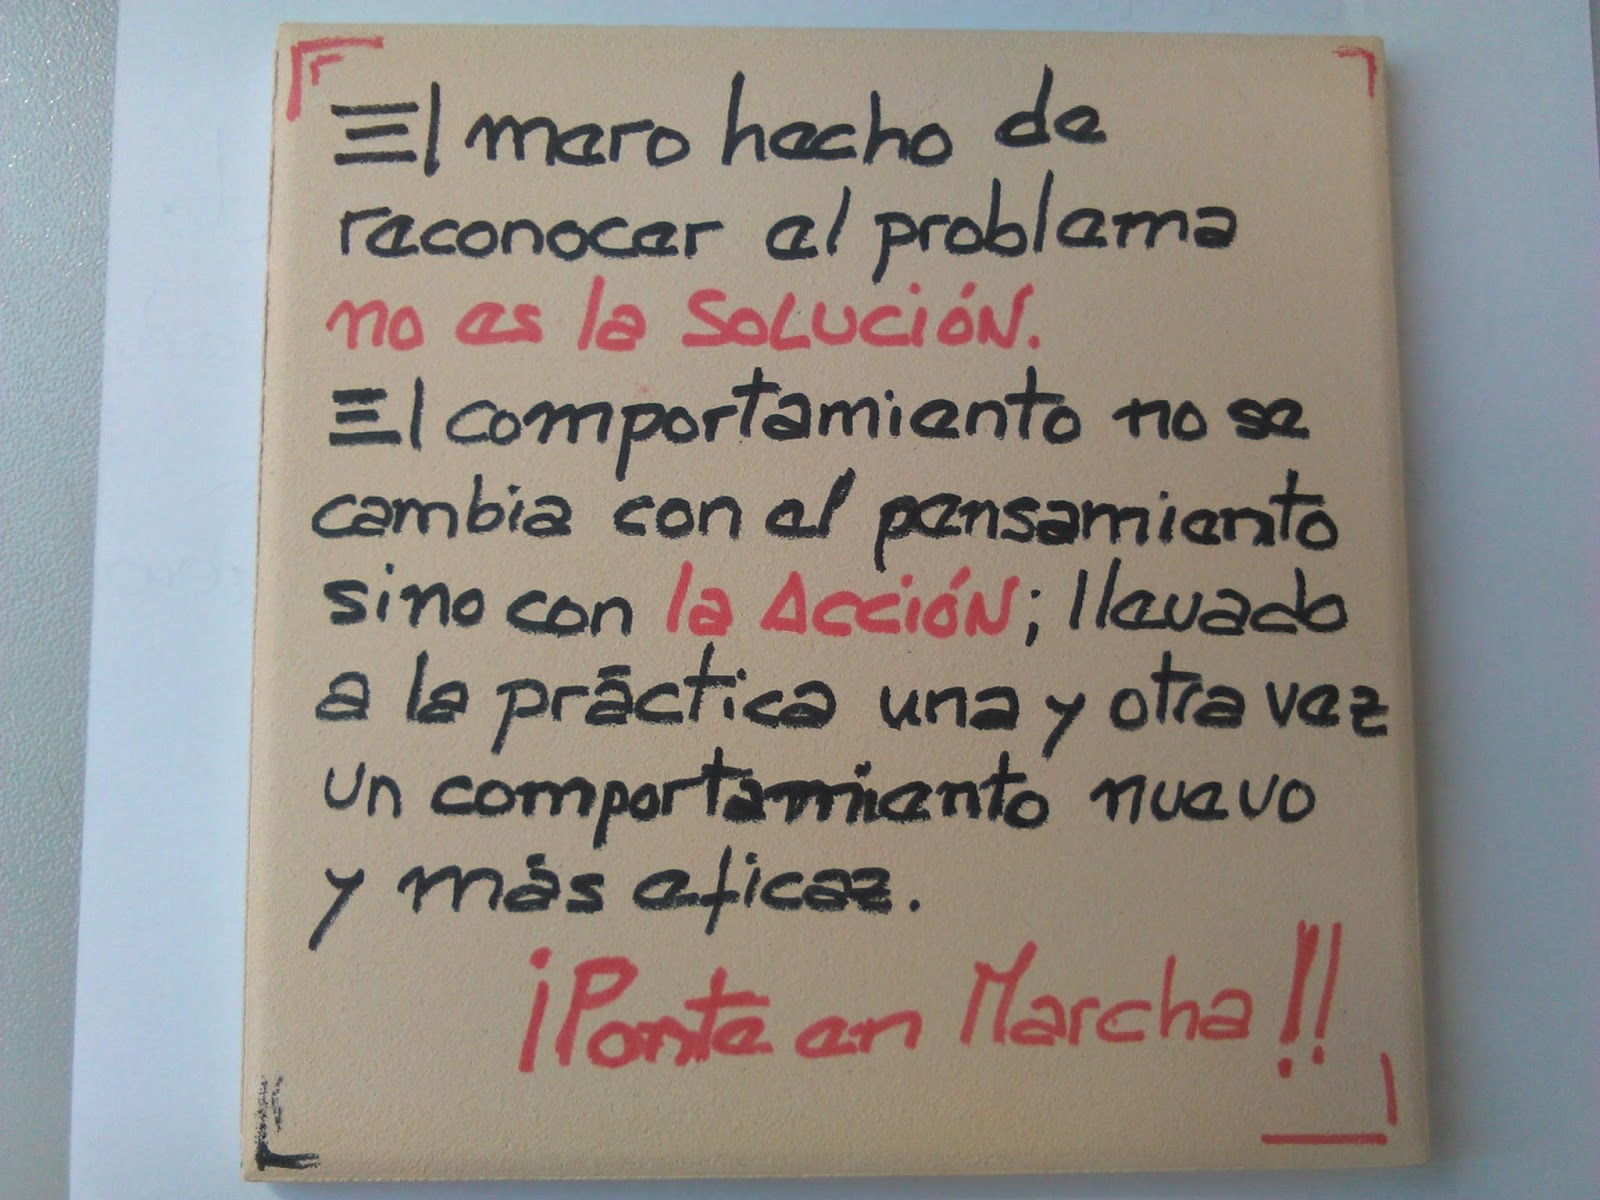 El mero hecho de
reconocer el problema
no es la SoLUCIÓN.
El comportamiento no se
cambia con el pensamiento
sino con la ACCIÓN; llevado
a la práctica una y otra vez
un comportamiento nuevo
y más eficaz.
¡Ponte en Marcha!!